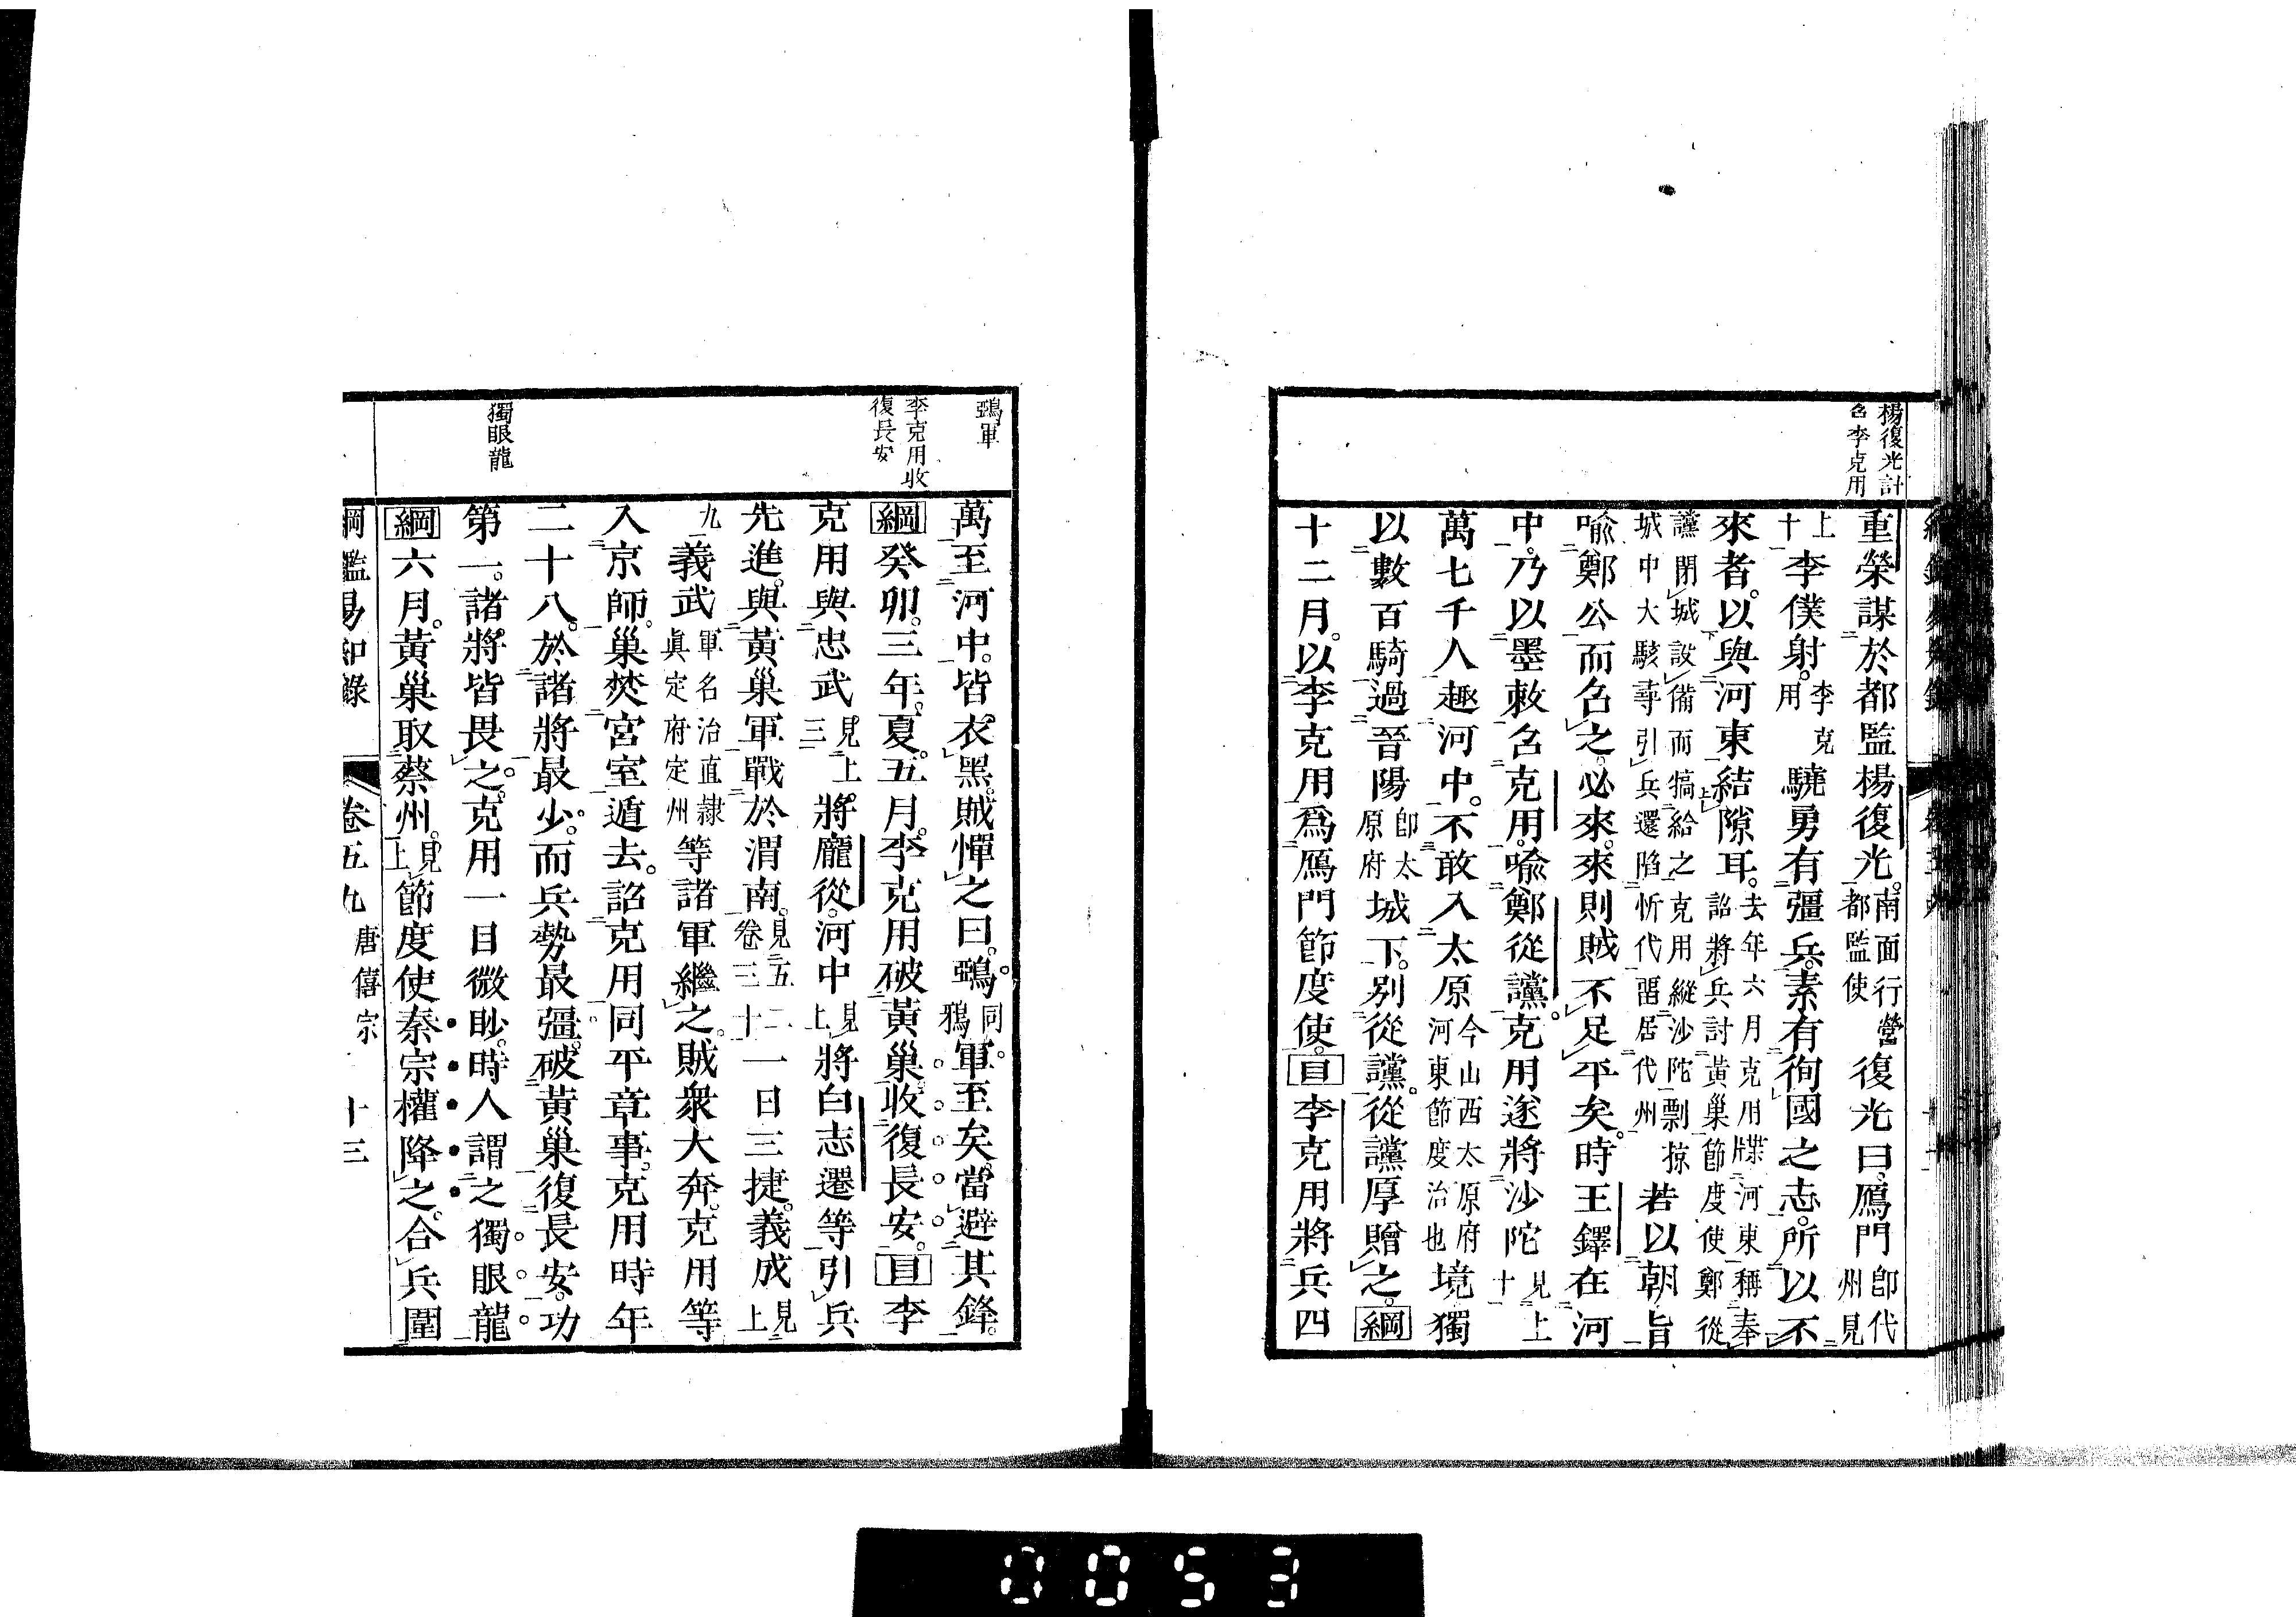 楊復光計
召李克用
重榮謀於都監楊復光南面行營都監使復光曰鴈門卽代州見
上十一李僕射李克用驍勇有彊兵素有徇國之志所以不
來者以與河東結隙耳去年六月克用牒河東稱奉詔將兵討黃巢節度使鄭從
讜閉城設備而犒給之克用縱沙陀剽掠城中大駭尋引兵還陷忻代留居代州若以朝旨
喩鄭公而召之必來來則賊不足平矣時王鐸在河
中乃以墨敕召克用喩鄭從讜克用遂將沙陀見上十一
萬七千人趣河中不敢入太原今山西太原府河東節度治也境獨
以數百騎過晉陽卽太原府城下別從讜從讜厚贈之綱
十二月以李克用爲鴈門節度使目李克用將兵四
鵶軍
李克用收
復長安
獨眼龍
萬至河中皆衣黑賊憚之曰鵶同鴉軍至矣當避其鋒
綱癸卯三年夏五月李克用破黃巢收復長安目李
克用與忠武見上三將龐從河中見上將白志遷等引兵
先進與黃巢軍戰於渭南見五卷三二十一日三捷義成見上
九義武軍名治直隷眞定府定州等諸軍繼之賊衆大奔克用等
入京師巢焚宮室遁去詔克用同平章事克用時年
二十八於諸將最少而兵勢最彊破黃巢復長安功
第一諸將皆畏之克用一目微眇時人謂之獨眼龍
綱六月黃巢取蔡州見上節度使秦宗權降之合兵圍
綱鑑易知錄 卷五九 唐僖宗 十三
0053